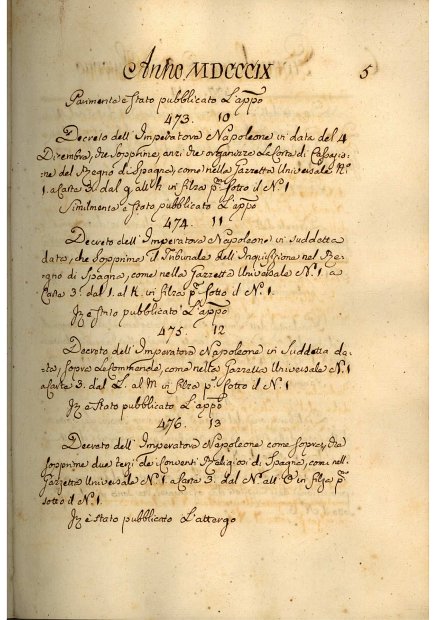 Anno MDCCCIX 5
Parimente è stato pubblicato L'appo
473. 10
Decreto dell'Imperatore Napoleone in data del 4
Dicembre, che sopprime, anzi che organizze La Corte di Cassazio=
ne del Regno di Spagna, come nella Gazzetta Universale N.º
1. a Carta 3. dal q. al K in filza pª sotto il N.º 1
Similmente è stato pubblicato L'appo
474. 11
Decreto dell'Imperatore Napoleone in suddetta
data, che sopprime il Tribunale dell'Inquisizione nel Re=
gno di Spagna, come nella Gazzetta Universale N.º 1. a
Carta 3. dal I. al K. in filza pª sotto il N.º 1.
It è stato pubblicato L'appo
475. 12
Decreto dell'Imperatore Napoleone in Suddetta da=
ta, sopra Le Commende, come nella Gazzetta Universale N.º 1
a Carta 3. dal L. al M in filza pª sotto il N.º 1
It è stato pubblicato L'appo
476. 13
Decreto dell'Imperatore Napoleone come sopra, che
sopprime due terzi de' Conventi Religiosi di Spagna, come nell.
Gazzetta Universale N.º 1 a Carta 3. dal N. all'O in filza pª
sotto il N.º 1.
It è stato pubblicato L'attergo